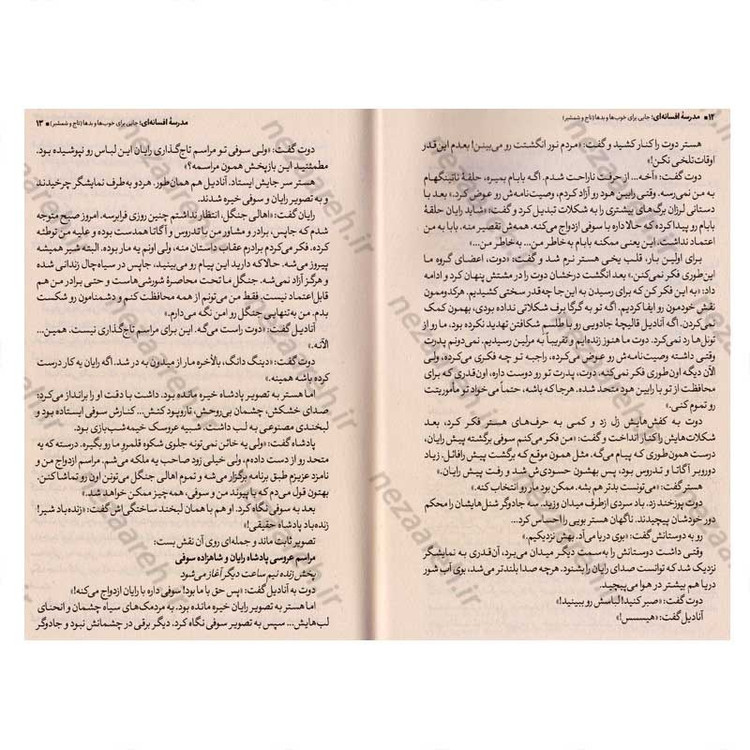 ۱۲ ▪ مدرسهٔ افسانه‌ای: جایی برای خوب‌ها و بدها (تاج و شمشیر)
هستر دوت را کنار کشید و گفت: «مردم نور انگشتت رو می‌بینن! بعدم این قدر
اوقات‌تلخی نکن!»
دوت گفت: «آخه... از حرفت ناراحت شدم. اگه بابام بمیره، حلقهٔ ناتینگهام
به من نمی‌رسه. وقتی رابین هود رو آزاد کردم، وصیت‌نامه‌ش رو عوض کرد.» بعد با
دستانی لرزان برگ‌های بیشتری را به شکلات تبدیل کرد و گفت: «شاید رایان حلقهٔ
بابام رو پیدا کرده که حالا داره با سوفی ازدواج می‌کنه. همه‌ش تقصیر منه. بابا به من
اعتماد نداشت. این یعنی ممکنه بابام به خاطر من... به خاطر من...»
برای اولین بار، قلب یخی هستر نرم شد و گفت: «دوت، اعضای گروه ما
این‌طوری فکر نمی‌کنن.» بعد انگشت درخشان دوت را در مشتش پنهان کرد و ادامه
داد: «به این فکر کن که برای رسیدن به این جا چه‌قدر سختی کشیدیم. هرکدوممون
نقش خودمون رو ایفا کردیم. اگه تو به گرگا برف شکلاتی نداده بودی، بهمون کمک
نمی‌کردن. اگه آنادیل قالیچهٔ جادویی رو با طلسم شکافتن تهدید نکرده بود، ما رو از
تونل‌ها رد نمی‌کرد. دوت ما هنوز زنده‌ایم و تقریباً به مرلین رسیدیم. نمی‌دونم پدرت
وقتی داشته وصیت‌نامه‌ش رو عوض می‌کرده، راجبه تو چه فکری می‌کرده، ولی
الآن دیگه اون‌طوری فکر نمی‌کنه. دوت، پدرت تو رو دوست داره، اون‌قدری که برای
محافظت از تو با رابین هود متحد شده. هرجا که باشه، حتماً می‌خواد تو مأموریتت
رو تموم کنی.»
دوت به کفش‌هایش زل زد و کمی به حرف‌های هستر فکر کرد، بعد
شکلات‌هایش را کنار انداخت و گفت: «من فکر می‌کنم سوفی برگشته پیش رایان،
درست همون‌طوری که پیام می‌گه. مثل همون موقع که برگشت پیش رافائل. زیاد
دوروبر آگاتا و تدروس بود، پس بهشون حسودی‌ش شد و رفت پیش رایان.»
هستر گفت: «می‌تونست بدتر هم بشه. ممکن بود مار رو انتخاب کنه.»
دوت پوزخند زد. باد سردی از طرف میدان وزید. سه جادوگر شنل‌هایشان را محکم
دور خودشان پیچیدند. ناگهان هستر بویی را احساس کرد...
رو به دوستانش گفت: «بوی دریا می‌آد. بهش نزدیکیم.»
وقتی داشت دوستانش را به‌سمت دیگر میدان می‌برد، آن‌قدری به نمایشگر
نزدیک شد که توانست صدای رایان را بشنود. هرچه صدا بلندتر می‌شد، بوی آب شور
دریا هم بیشتر در هوا می‌پیچید.
دوت گفت: «صبر کنید! لباسش رو ببینید!»
آنادیل گفت: «هیسسس!»
مدرسهٔ افسانه‌ای: جایی برای خوب‌ها و بدها (تاج و شمشیر) ▪ ۱۳
دوت گفت: «ولی سوفی تو مراسم تاج‌گذاری رایان این لباس رو نپوشیده بود.
مطمئنید این بازپخش همون مراسمه؟»
هستر سر جایش ایستاد. آنادیل هم همان‌طور. هردو به‌طرف نمایشگر چرخیدند
و به تصویر رایان و سوفی خیره شدند.
رایان گفت: «اهالی جنگل، انتظار نداشتم چنین روزی فرابرسه. امروز صبح متوجه
شدم که جاپس، برادر و مشاور من با تدروس و آگاتا همدست بوده و علیه من توطئه
کرده. فکر می‌کردم برادرم عقاب داستان منه، ولی اونم یه مار بوده. البته شیر همیشه
پیروز می‌شه. حالا که دارید این پیام رو می‌بینید، جاپس در سیاه‌چال زندانی شده
و هرگز آزاد نمی‌شه. جنگل ما تحت محاصرهٔ شورشی‌هاست و حتی برادر من هم
قابل اعتماد نیست. فقط من می‌تونم از همه محافظت کنم و دشمنامون رو شکست
بدم. من به‌تنهایی جنگل رو امن نگه می‌دارم.»
آنادیل گفت: «دوت راست می‌گه. این برای مراسم تاج‌گذاری نیست. همین...
الآنه.»
دوت گفت: «دینگ دانگ، بالأخره مار از میدون به در شد. اگه رایان یه کار درست
کرده باشه همینه.»
اما هستر به تصویر پادشاه خیره مانده بود. داشت با دقت او را برانداز می‌کرد:
صدای خشکش، چشمان بی‌روحش، تاروپود کتش... کنارش سوفی ایستاده بود و
لبخندی مصنوعی به لب داشت. شبیه عروسک خیمه‌شب‌بازی بود.
پادشاه گفت: «ولی یه خائن نمی‌تونه جلوی شکوه قلمرو ما رو بگیره. درسته که یه
متحد رو از دست داده‌م، ولی خیلی زود صاحب یه ملکه می‌شم. مراسم ازدواج من و
نامزد عزیزم طبق برنامه برگزار می‌شه و تموم اهالی جنگل می‌تونن اون رو تماشا کنن.
بهتون قول می‌دم که با پیوند من و سوفی، همه‌چیز ممکن خواهد شد.»
بعد به سوفی نگاه کرد. او هم با همان لبخند ساختگی‌اش گفت: «زنده‌باد شیر!
زنده‌باد پادشاه حقیقی!»
تصویر ثابت ماند و جمله‌ای روی آن نقش بست:
مراسم عروسی پادشاه رایان و شاهزاده سوفی
پخش زنده نیم ساعت دیگر آغاز می‌شود
دوت به آنادیل گفت: «پس حق با ما بود! سوفی داره با رایان ازدواج می‌کنه!»
اما هستر به تصویر رایان خیره مانده بود. به مردمک‌های سیاه چشمان و انحنای
لب‌هایش... سپس به تصویر سوفی نگاه کرد. دیگر برقی در چشمانش نبود و جادوگر
nezaareh.ir